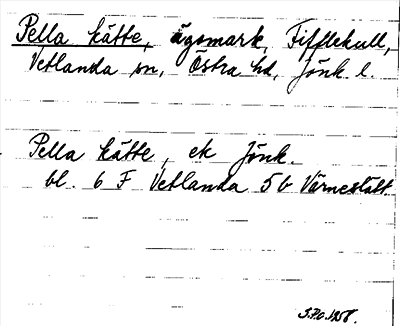 Pella kätte, ägomark, Fifflekull,
Vetlanda sn, Östra hd, Jönk l.
Pella kätte, ek Jönk.
bl. 6 F Vetlanda 5 b Värnestätt.
1958.